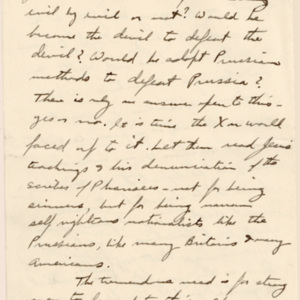 evil by evil or not? Would he
become the devil to defeat the
devil? Would he adopt Prussian
methods to defeat Prussia?
There is only an answer open to this -
yes or no. It is time the Xn world
faced up to it. Let them read Jesus
teachings & his denunciation of the
scribes & Pharisees - not for being
sinners, but for being narrow
self righteous nationalists like the
Prussians, like many Britains & many
Americans.
The tremendous need is for strong